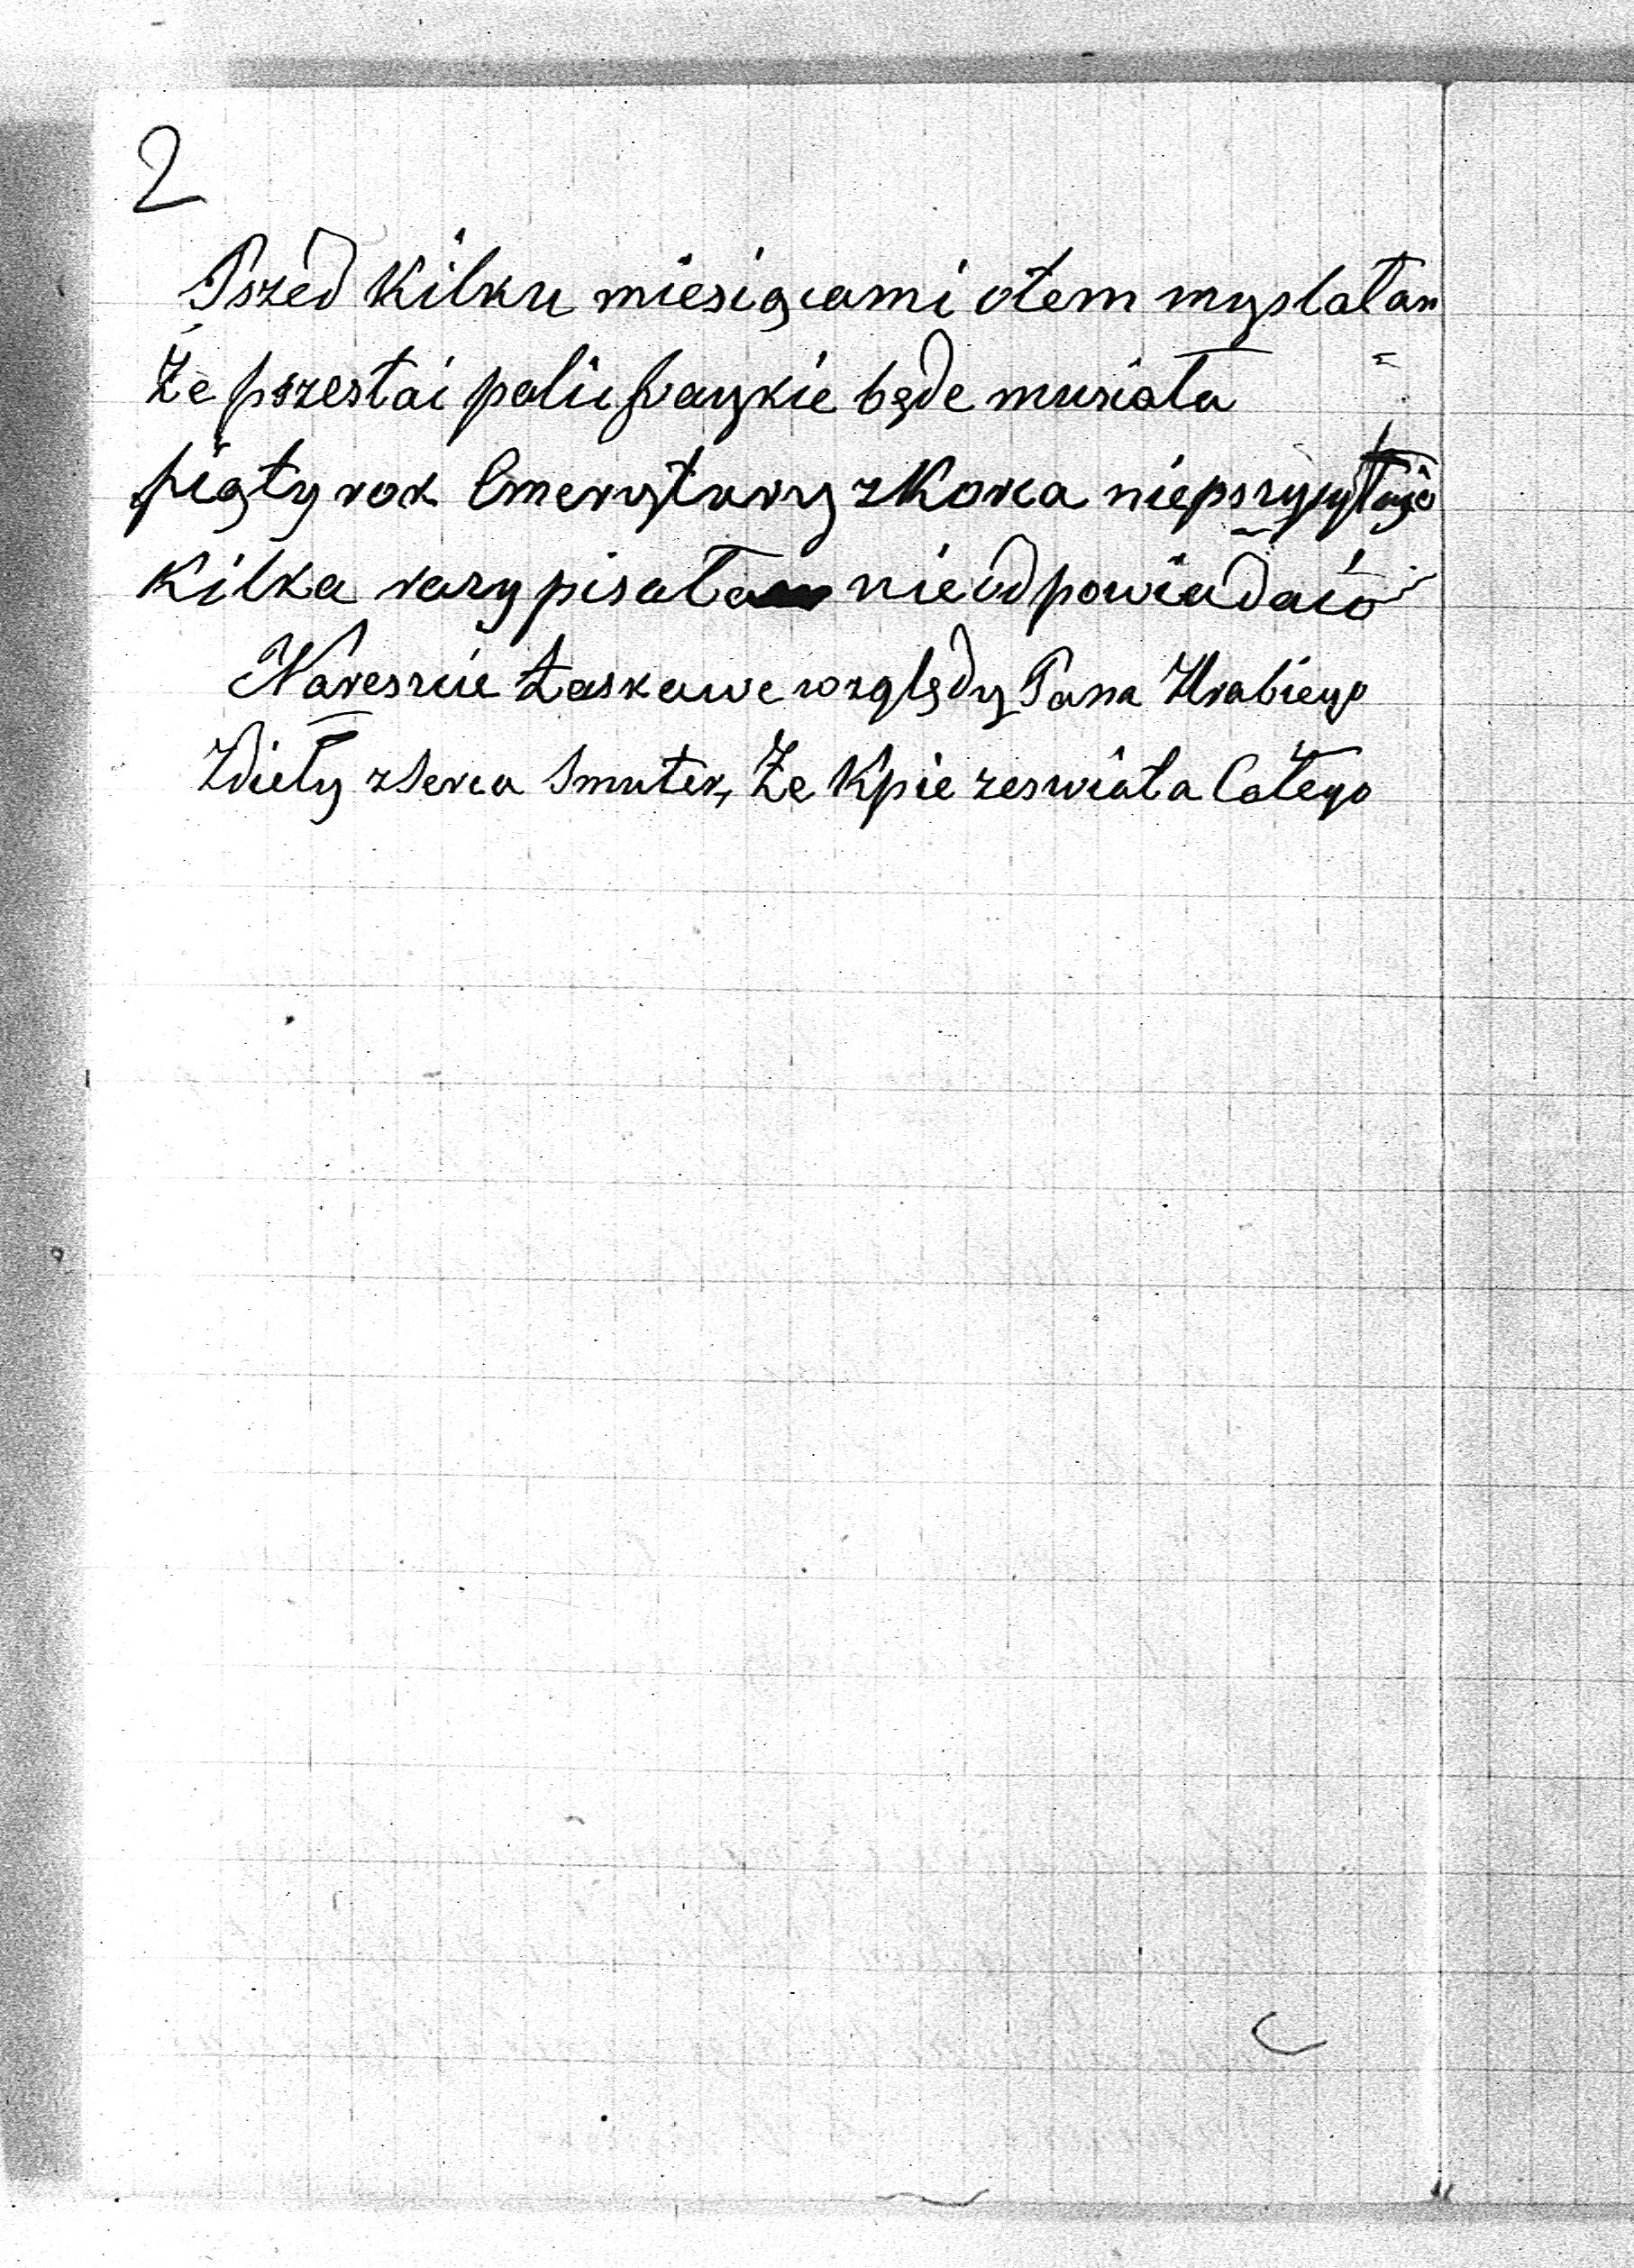 2
Pszed Kilku miesiącami otem myslałam
Że pszestai palić fvaykie będe musiała
piąty rok Emerytury zKońca niepszysyłajo
Kilka razy pisała nieodpowiadaio
Nareszcie Łaskawe względy Pana Hrabiego
Zdieły zSerca Smutek, Że Kpie zeswiata Całego